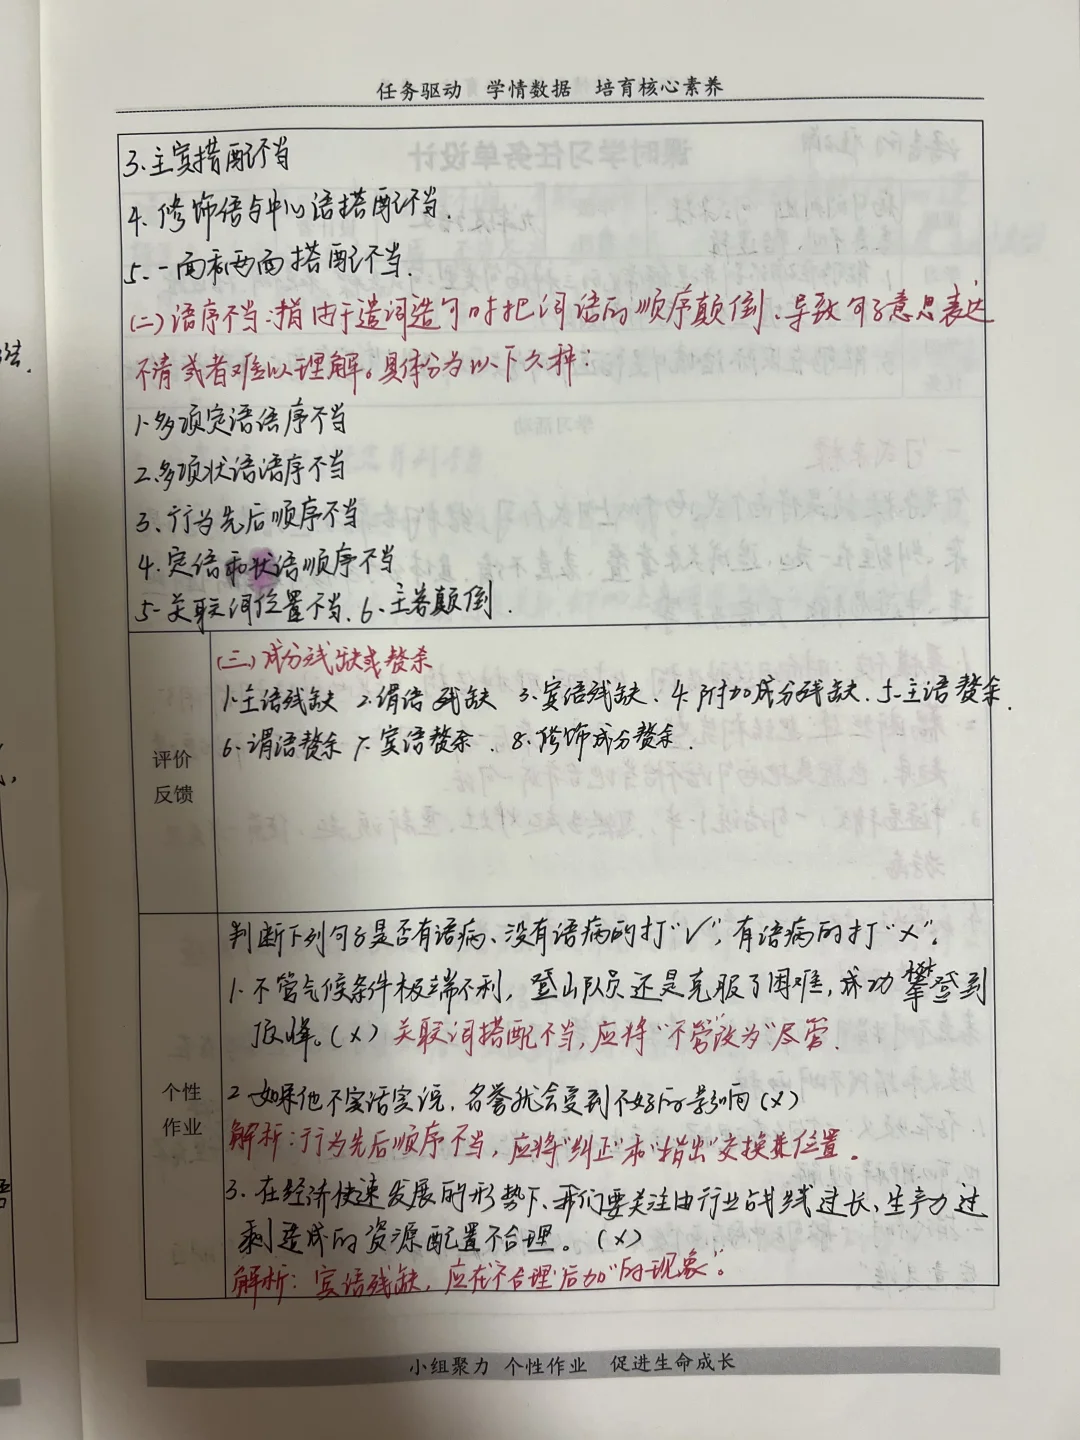 任务驱动 学情数据 培育核心素养
3、主宾搭配不当
4、修饰语与中心语搭配不当.
5、一面和两面搭配不当.
(二)语序不当:指由于造词造句时把词语的顺序颠倒、导致句子意思表达
不清或者难以理解。具体分为以下六种:
1、多项定语语序不当
2、多项状语语序不当
3、行为先后顺序不当
4、定语和状语顺序不当
5、关联词位置不当、6、主客颠倒.
(三)成分残缺或赘余
1、主语残缺 2、谓语残缺 3、宾语残缺、4、附加成分残缺、5、主语赘余、
6、谓语赘余 7、宾语赘余、8、修饰成分赘余.
评价
反馈
判断下列句子是否有语病、没有语病的打"√",有语病的打"×"。
1、不管气候条件极端不利,登山队员还是克服了困难,成功攀登到
顶峰。(×)关联词搭配不当,应将"不管"改为"尽管.
个性
作业
2、如果他不实话实说、名誉就会受到不好的影响(×)
解析:行为先后顺序不当,应将"纠正"和"指出"交换位置。
3、在经济快速发展的形势下、我们要关注由行业战线过长、生产力过
剩造成的资源配置不合理。(×)
解析:宾语残缺,应在"不合理"后加"的现象"。
小组聚力 个性作业 促进生命成长